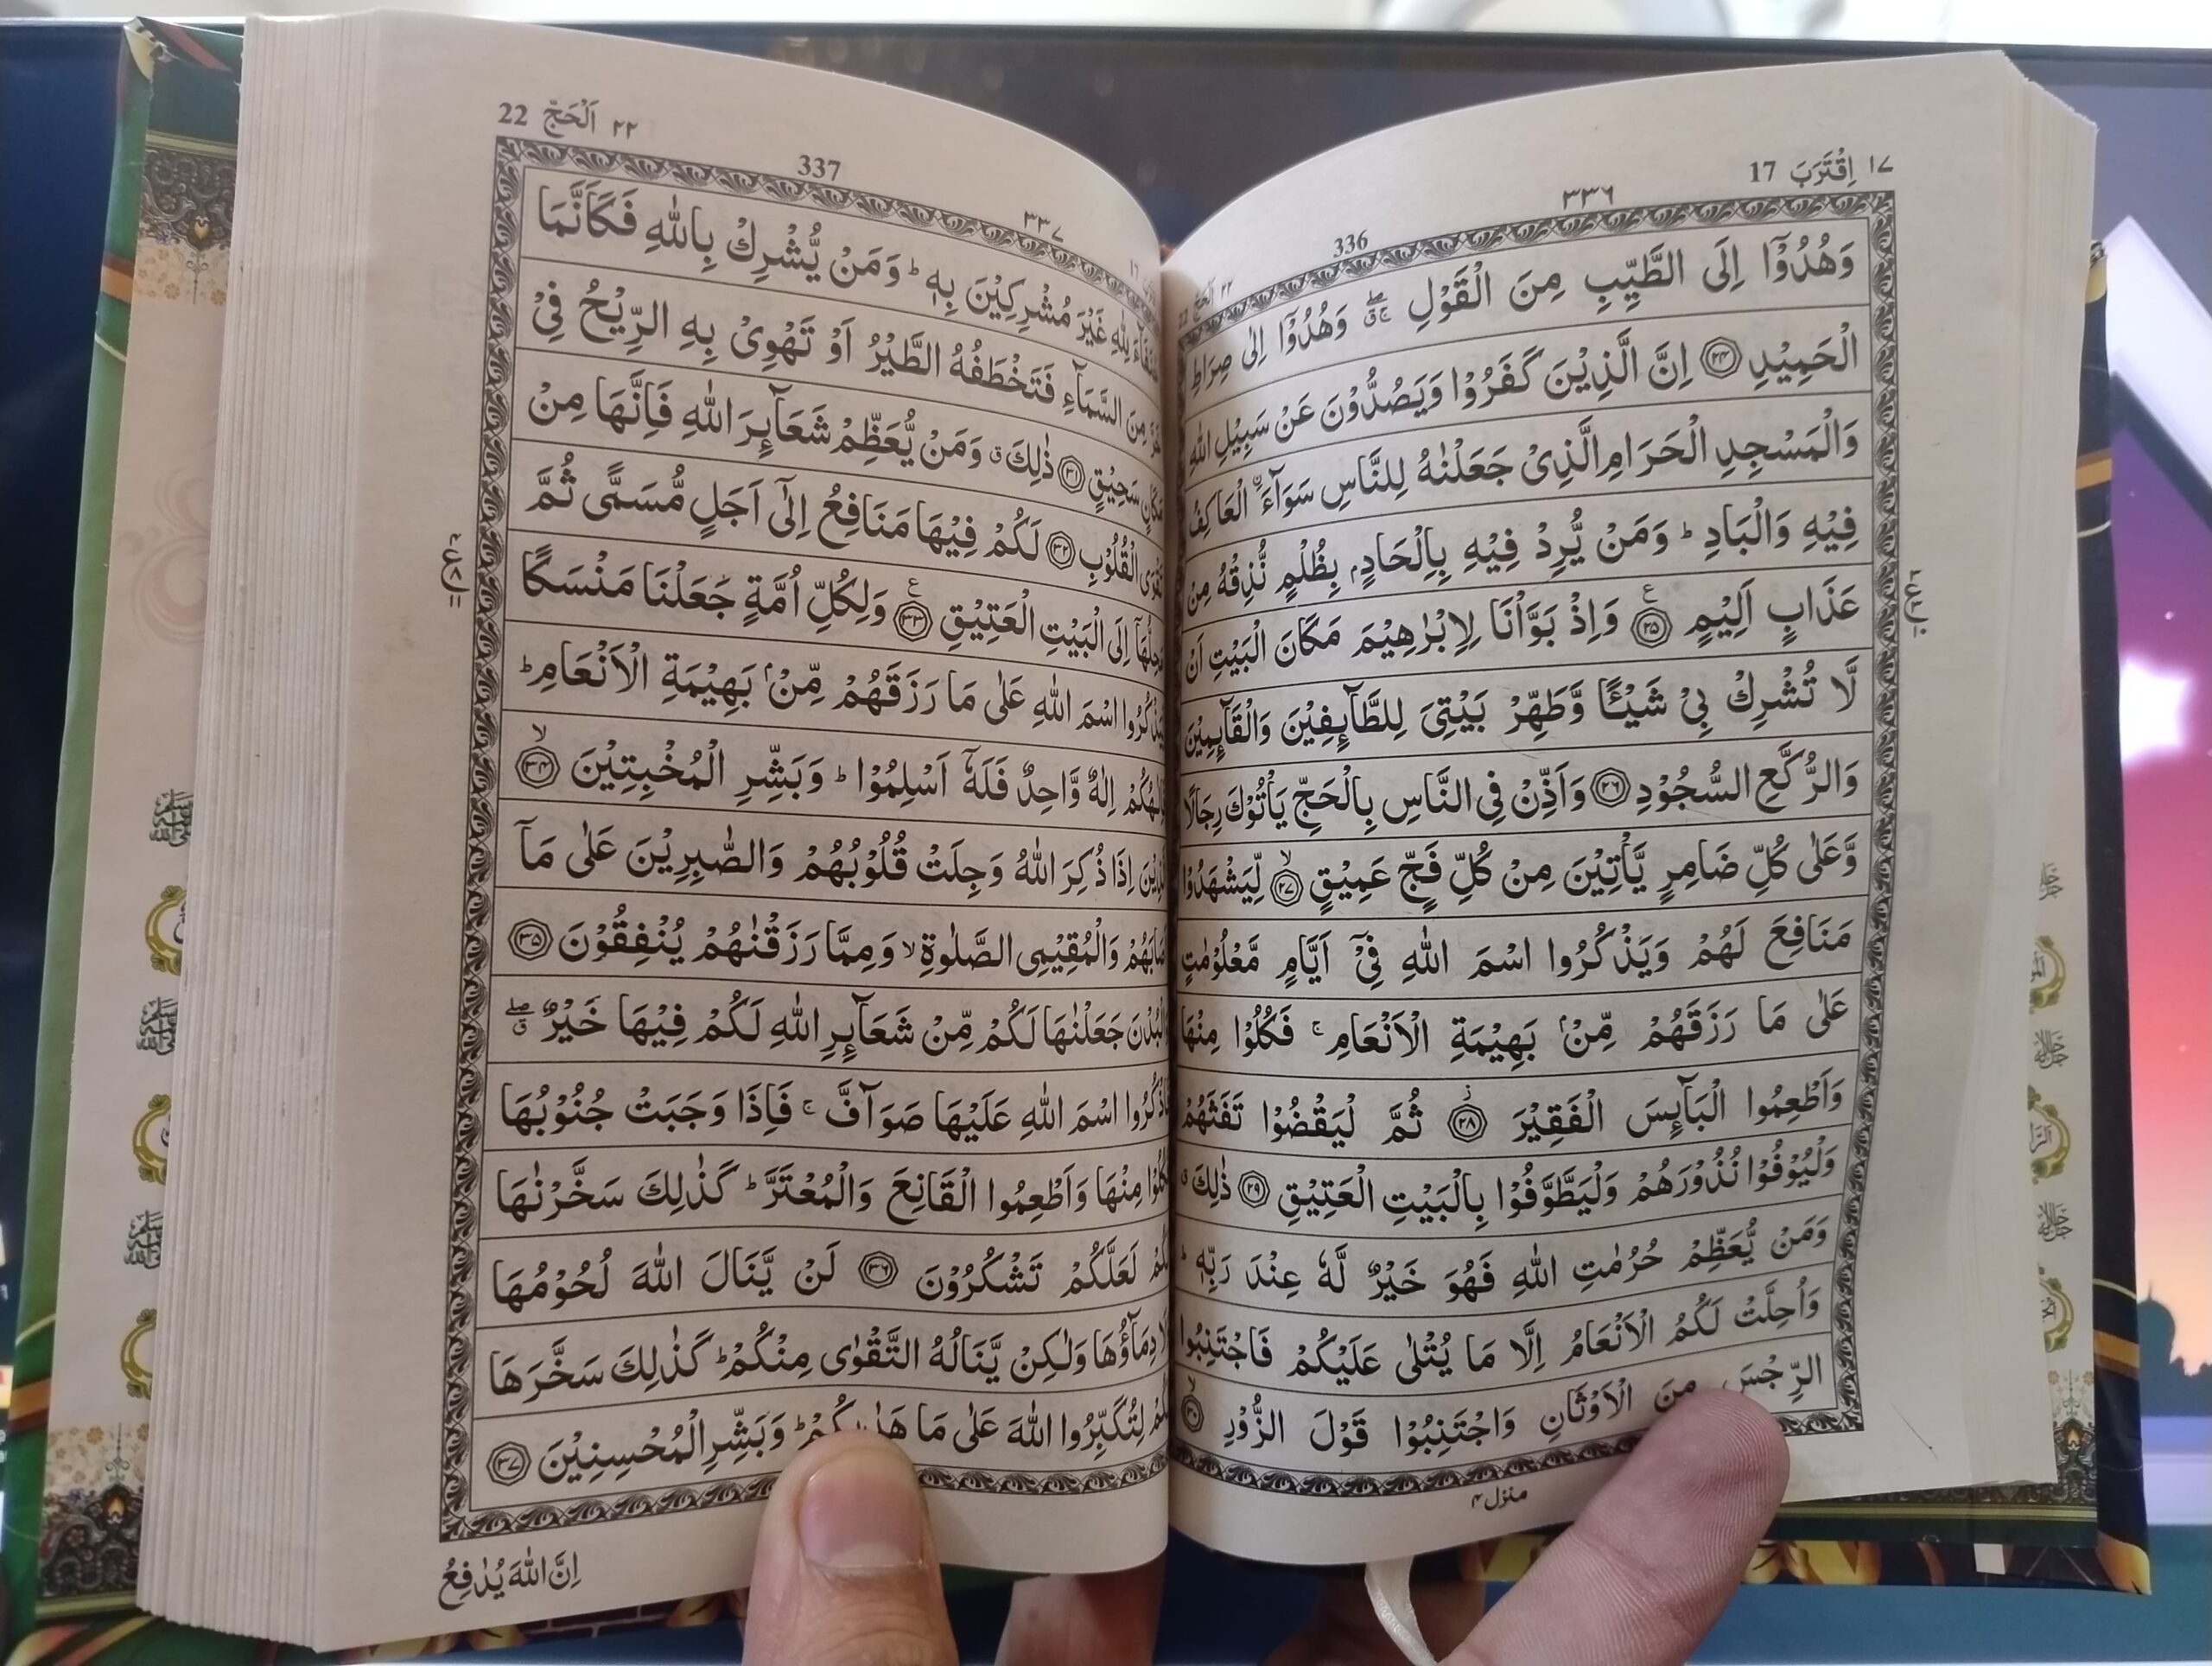 ١٧ اِقْتَرَبَ 17
٣٣٦
336
٢٢ اَلْحَجّ
وَهُدُوْۤا اِلَى الطَّيِّبِ مِنَ الْقَوْلِ ۖۚ وَهُدُوْۤا اِلٰى صِرَاطِ
الْحَمِيْدِ ﴿۲۴﴾ اِنَّ الَّذِيْنَ كَفَرُوْا وَيَصُدُّوْنَ عَنْ سَبِيْلِ اللّٰهِ
وَالْمَسْجِدِ الْحَرَامِ الَّذِيْ جَعَلْنٰهُ لِلنَّاسِ سَوَآءَ ۨ الْعَاكِفُ
فِيْهِ وَالْبَادِ ؕ وَمَنْ يُّرِدْ فِيْهِ بِاِلْحَادٍۭ بِظُلْمٍ نُّذِقْهُ مِنْ
عَذَابٍ اَلِيْمٍ ﴿۲۵﴾ ع وَاِذْ بَوَّاْنَا لِاِبْرٰهِيْمَ مَكَانَ الْبَيْتِ اَنْ
لَّا تُشْرِكْ بِيْ شَيْـًٔا وَّطَهِّرْ بَيْتِيَ لِلطَّآئِفِيْنَ وَالْقَآئِمِيْنَ
وَالرُّكَّعِ السُّجُوْدِ ﴿۲۶﴾ وَاَذِّنْ فِي النَّاسِ بِالْحَجِّ يَاْتُوْكَ رِجَالًا
وَّعَلٰى كُلِّ ضَامِرٍ يَّاْتِيْنَ مِنْ كُلِّ فَجٍّ عَمِيْقٍ ﴿۲۷﴾ ۙ لِّيَشْهَدُوْا
مَنَافِعَ لَهُمْ وَيَذْكُرُوا اسْمَ اللّٰهِ فِيْۤ اَيَّامٍ مَّعْلُوْمٰتٍ
عَلٰى مَا رَزَقَهُمْ مِّنْۢ بَهِيْمَةِ الْاَنْعَامِ ۚ فَكُلُوْا مِنْهَا
وَاَطْعِمُوا الْبَآئِسَ الْفَقِيْرَ ﴿۲۸﴾ ز ثُمَّ لْيَقْضُوْا تَفَثَهُمْ
وَلْيُوْفُوْا نُذُوْرَهُمْ وَلْيَطَّوَّفُوْا بِالْبَيْتِ الْعَتِيْقِ ﴿۲۹﴾ ذٰلِكَ ۗ
وَمَنْ يُّعَظِّمْ حُرُمٰتِ اللّٰهِ فَهُوَ خَيْرٌ لَّهٗ عِنْدَ رَبِّهٖ ؕ
وَاُحِلَّتْ لَكُمُ الْاَنْعَامُ اِلَّا مَا يُتْلٰى عَلَيْكُمْ فَاجْتَنِبُوا
الرِّجْسَ مِنَ الْاَوْثَانِ وَاجْتَنِبُوْا قَوْلَ الزُّوْرِ ﴿۳۰﴾ ۙ
منزل ۴
22 اَلْحَجّ ٢٢
337
٣٣٧
لِلّٰهِ غَيْرَ مُشْرِكِيْنَ بِهٖ ؕ وَمَنْ يُّشْرِكْ بِاللّٰهِ فَكَاَنَّمَا
مِنَ السَّمَآءِ فَتَخْطَفُهُ الطَّيْرُ اَوْ تَهْوِيْ بِهِ الرِّيْحُ فِيْ
مَكَانٍ سَحِيْقٍ ﴿۳۱﴾ ذٰلِكَ ۗ وَمَنْ يُّعَظِّمْ شَعَآئِرَ اللّٰهِ فَاِنَّهَا مِنْ
تَقْوَى الْقُلُوْبِ ﴿۳۲﴾ لَكُمْ فِيْهَا مَنَافِعُ اِلٰۤى اَجَلٍ مُّسَمًّى ثُمَّ
مَحِلُّهَاۤ اِلَى الْبَيْتِ الْعَتِيْقِ ﴿۳۳﴾ ع وَلِكُلِّ اُمَّةٍ جَعَلْنَا مَنْسَكًا
لِّيَذْكُرُوا اسْمَ اللّٰهِ عَلٰى مَا رَزَقَهُمْ مِّنْۢ بَهِيْمَةِ الْاَنْعَامِ ؕ
فَاِلٰهُكُمْ اِلٰهٌ وَّاحِدٌ فَلَهٗۤ اَسْلِمُوْا ؕ وَبَشِّرِ الْمُخْبِتِيْنَ ﴿۳۴﴾ ۙ
الَّذِيْنَ اِذَا ذُكِرَ اللّٰهُ وَجِلَتْ قُلُوْبُهُمْ وَالصّٰبِرِيْنَ عَلٰى مَاۤ
اَصَابَهُمْ وَالْمُقِيْمِي الصَّلٰوةِ ۙ وَمِمَّا رَزَقْنٰهُمْ يُنْفِقُوْنَ ﴿۳۵﴾
وَالْبُدْنَ جَعَلْنٰهَا لَكُمْ مِّنْ شَعَآئِرِ اللّٰهِ لَكُمْ فِيْهَا خَيْرٌ ۖۗ
فَاذْكُرُوا اسْمَ اللّٰهِ عَلَيْهَا صَوَآفَّ ۚ فَاِذَا وَجَبَتْ جُنُوْبُهَا
فَكُلُوْا مِنْهَا وَاَطْعِمُوا الْقَانِعَ وَالْمُعْتَرَّ ؕ كَذٰلِكَ سَخَّرْنٰهَا
لَكُمْ لَعَلَّكُمْ تَشْكُرُوْنَ ﴿۳۶﴾ لَنْ يَّنَالَ اللّٰهَ لُحُوْمُهَا
وَلَا دِمَآؤُهَا وَلٰكِنْ يَّنَالُهُ التَّقْوٰى مِنْكُمْ ؕ كَذٰلِكَ سَخَّرَهَا
لَكُمْ لِتُكَبِّرُوا اللّٰهَ عَلٰى مَا هَدٰىكُمْ ؕ وَبَشِّرِ الْمُحْسِنِيْنَ ﴿۳۷﴾
اِنَّ اللّٰهَ يُدٰفِعُ